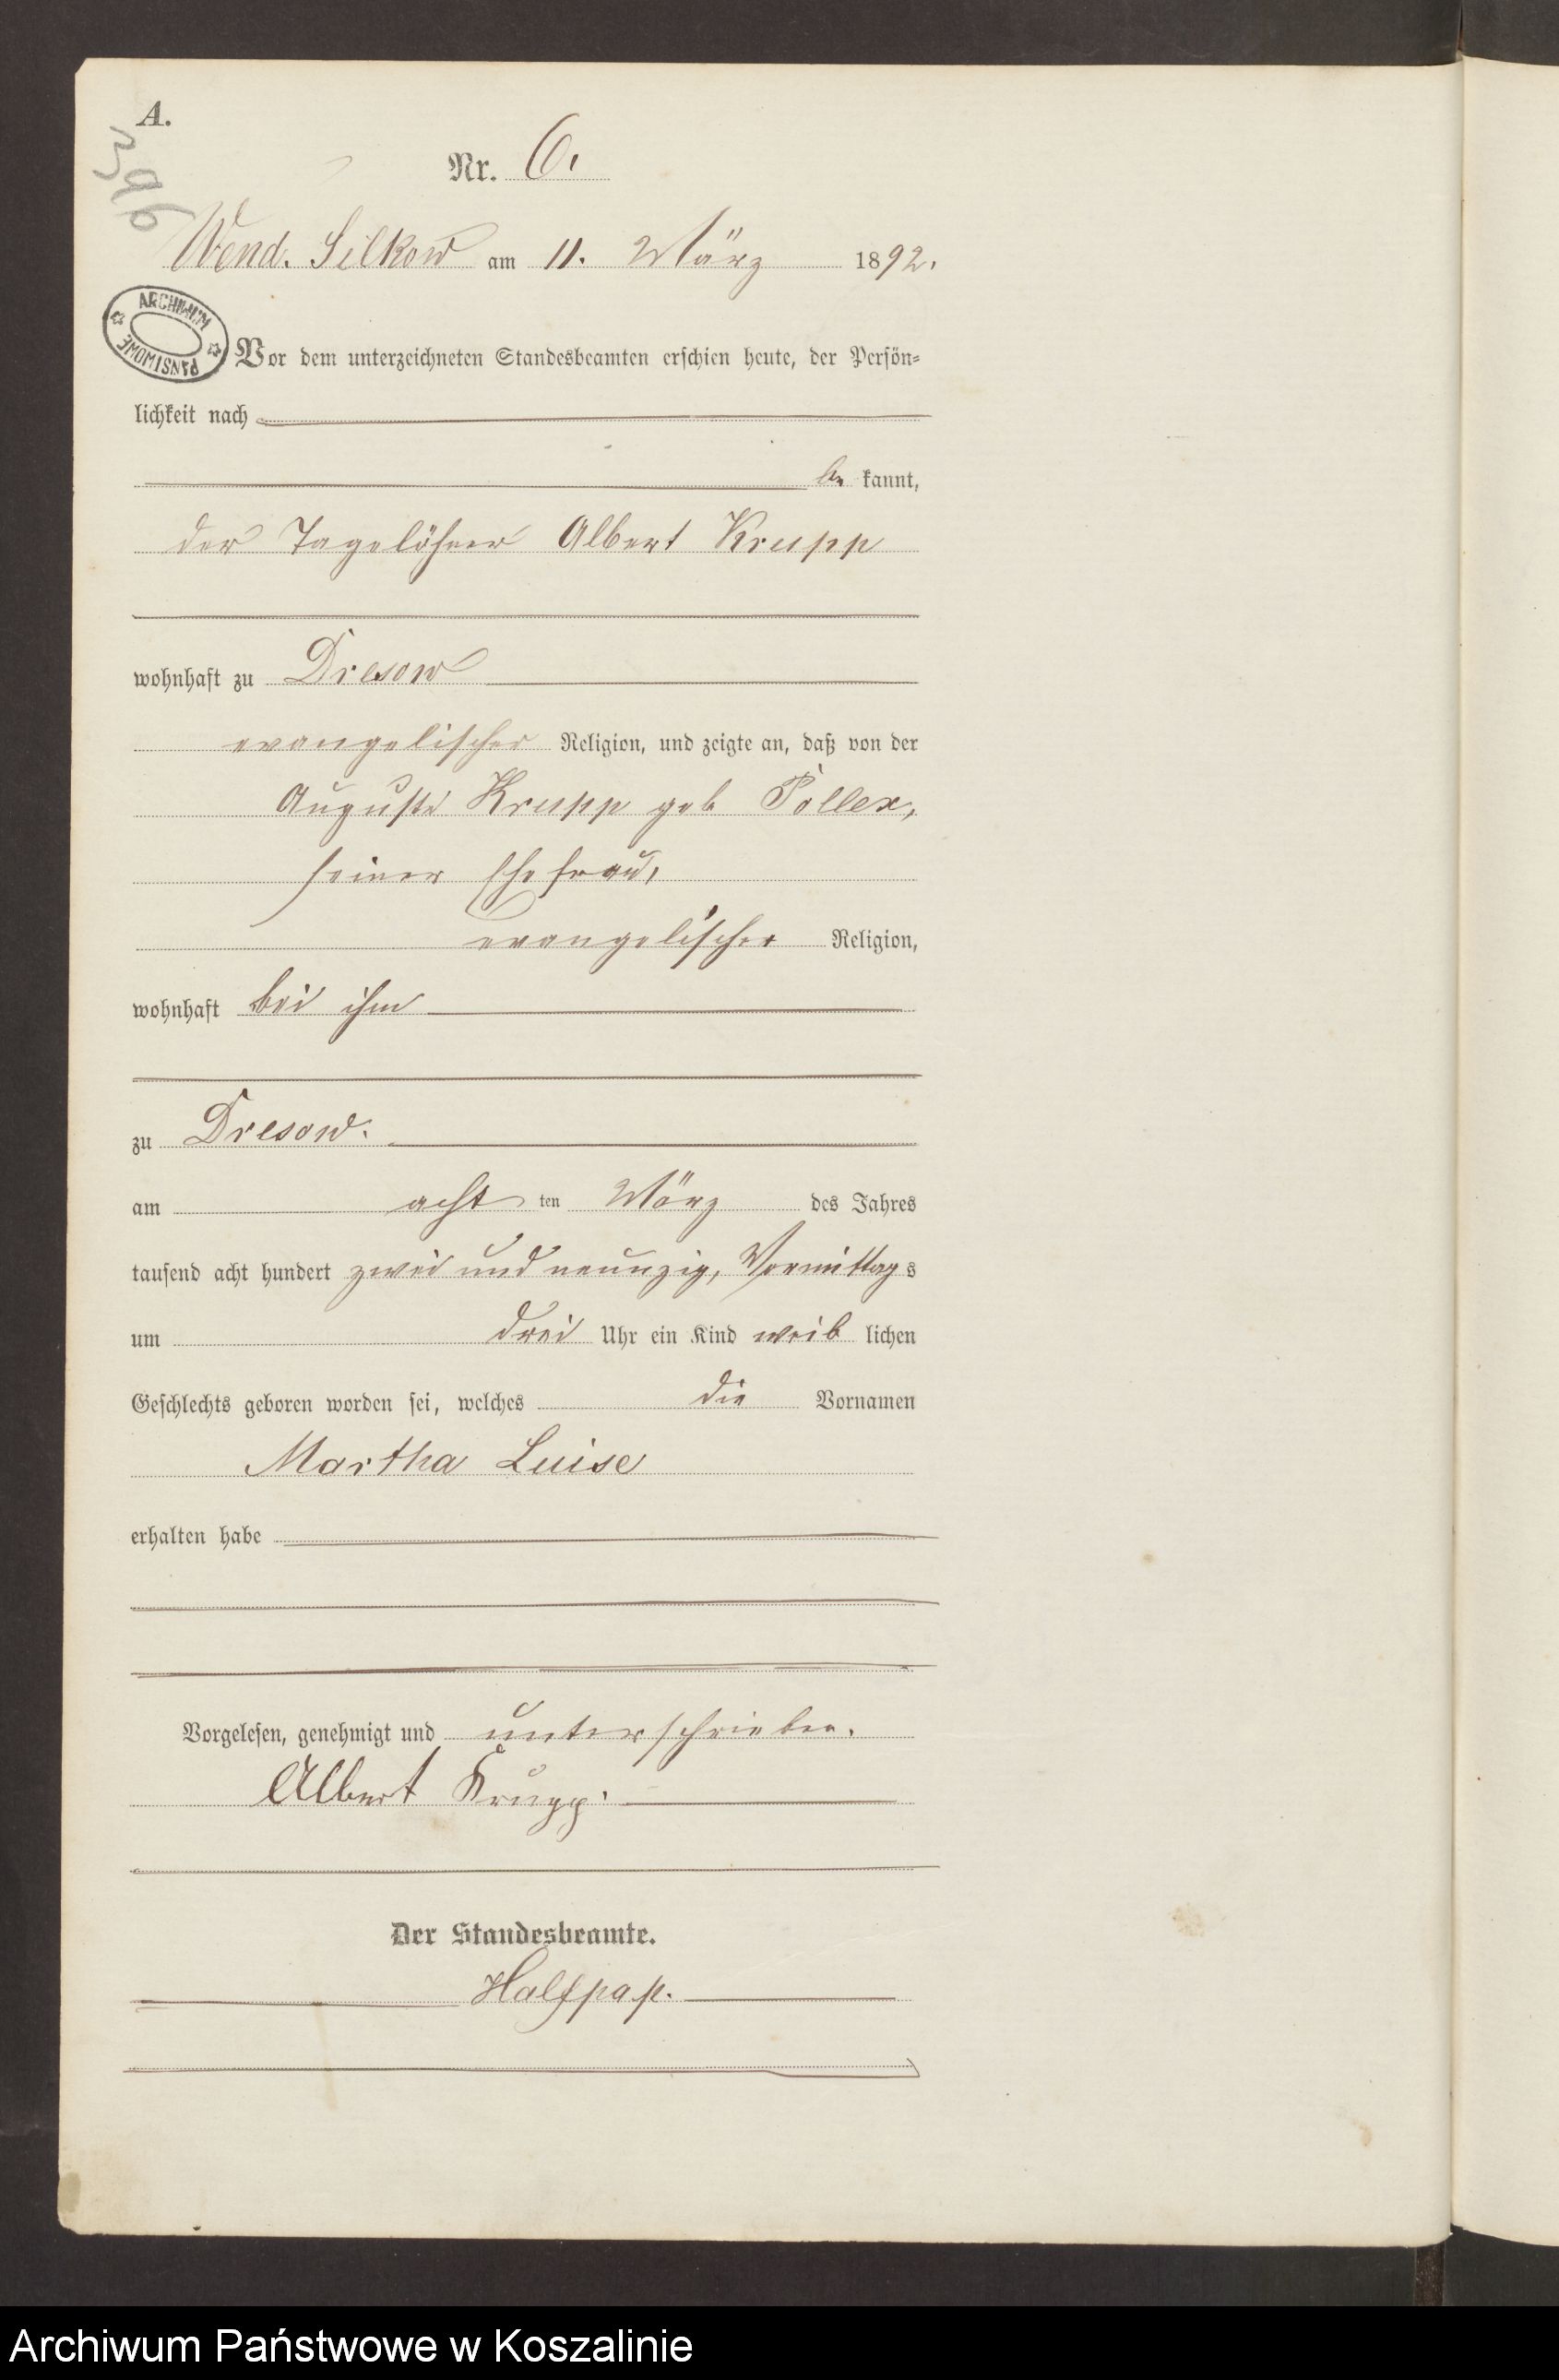 A.
396
Nr. 6.
Wend. Silkow am 11. März 1892.
ARCHIWUM PAŃSTWOWE
Vor dem unterzeichneten Standesbeamten erschien heute, der Persön-
lichkeit nach
be kannt,
der Tagelöhner Albert Krupp
wohnhaft zu Dresow
evangelischer Religion, und zeigte an, daß von der
Auguste Krupp geb Pollex,
seiner Ehefrau,
evangelischer Religion,
wohnhaft bei ihm
zu Dresow.
am acht ten März des Jahres
tausend acht hundert zwei und neunzig, Vormittag s
um drei Uhr ein Kind weib lichen
Geschlechts geboren worden sei, welches die Vornamen
Martha Luise
erhalten habe
Vorgelesen, genehmigt und unterschrieben.
Albert Krupp.
Der Standesbeamte.
Halfpap.
Archiwum Państwowe w Koszalinie